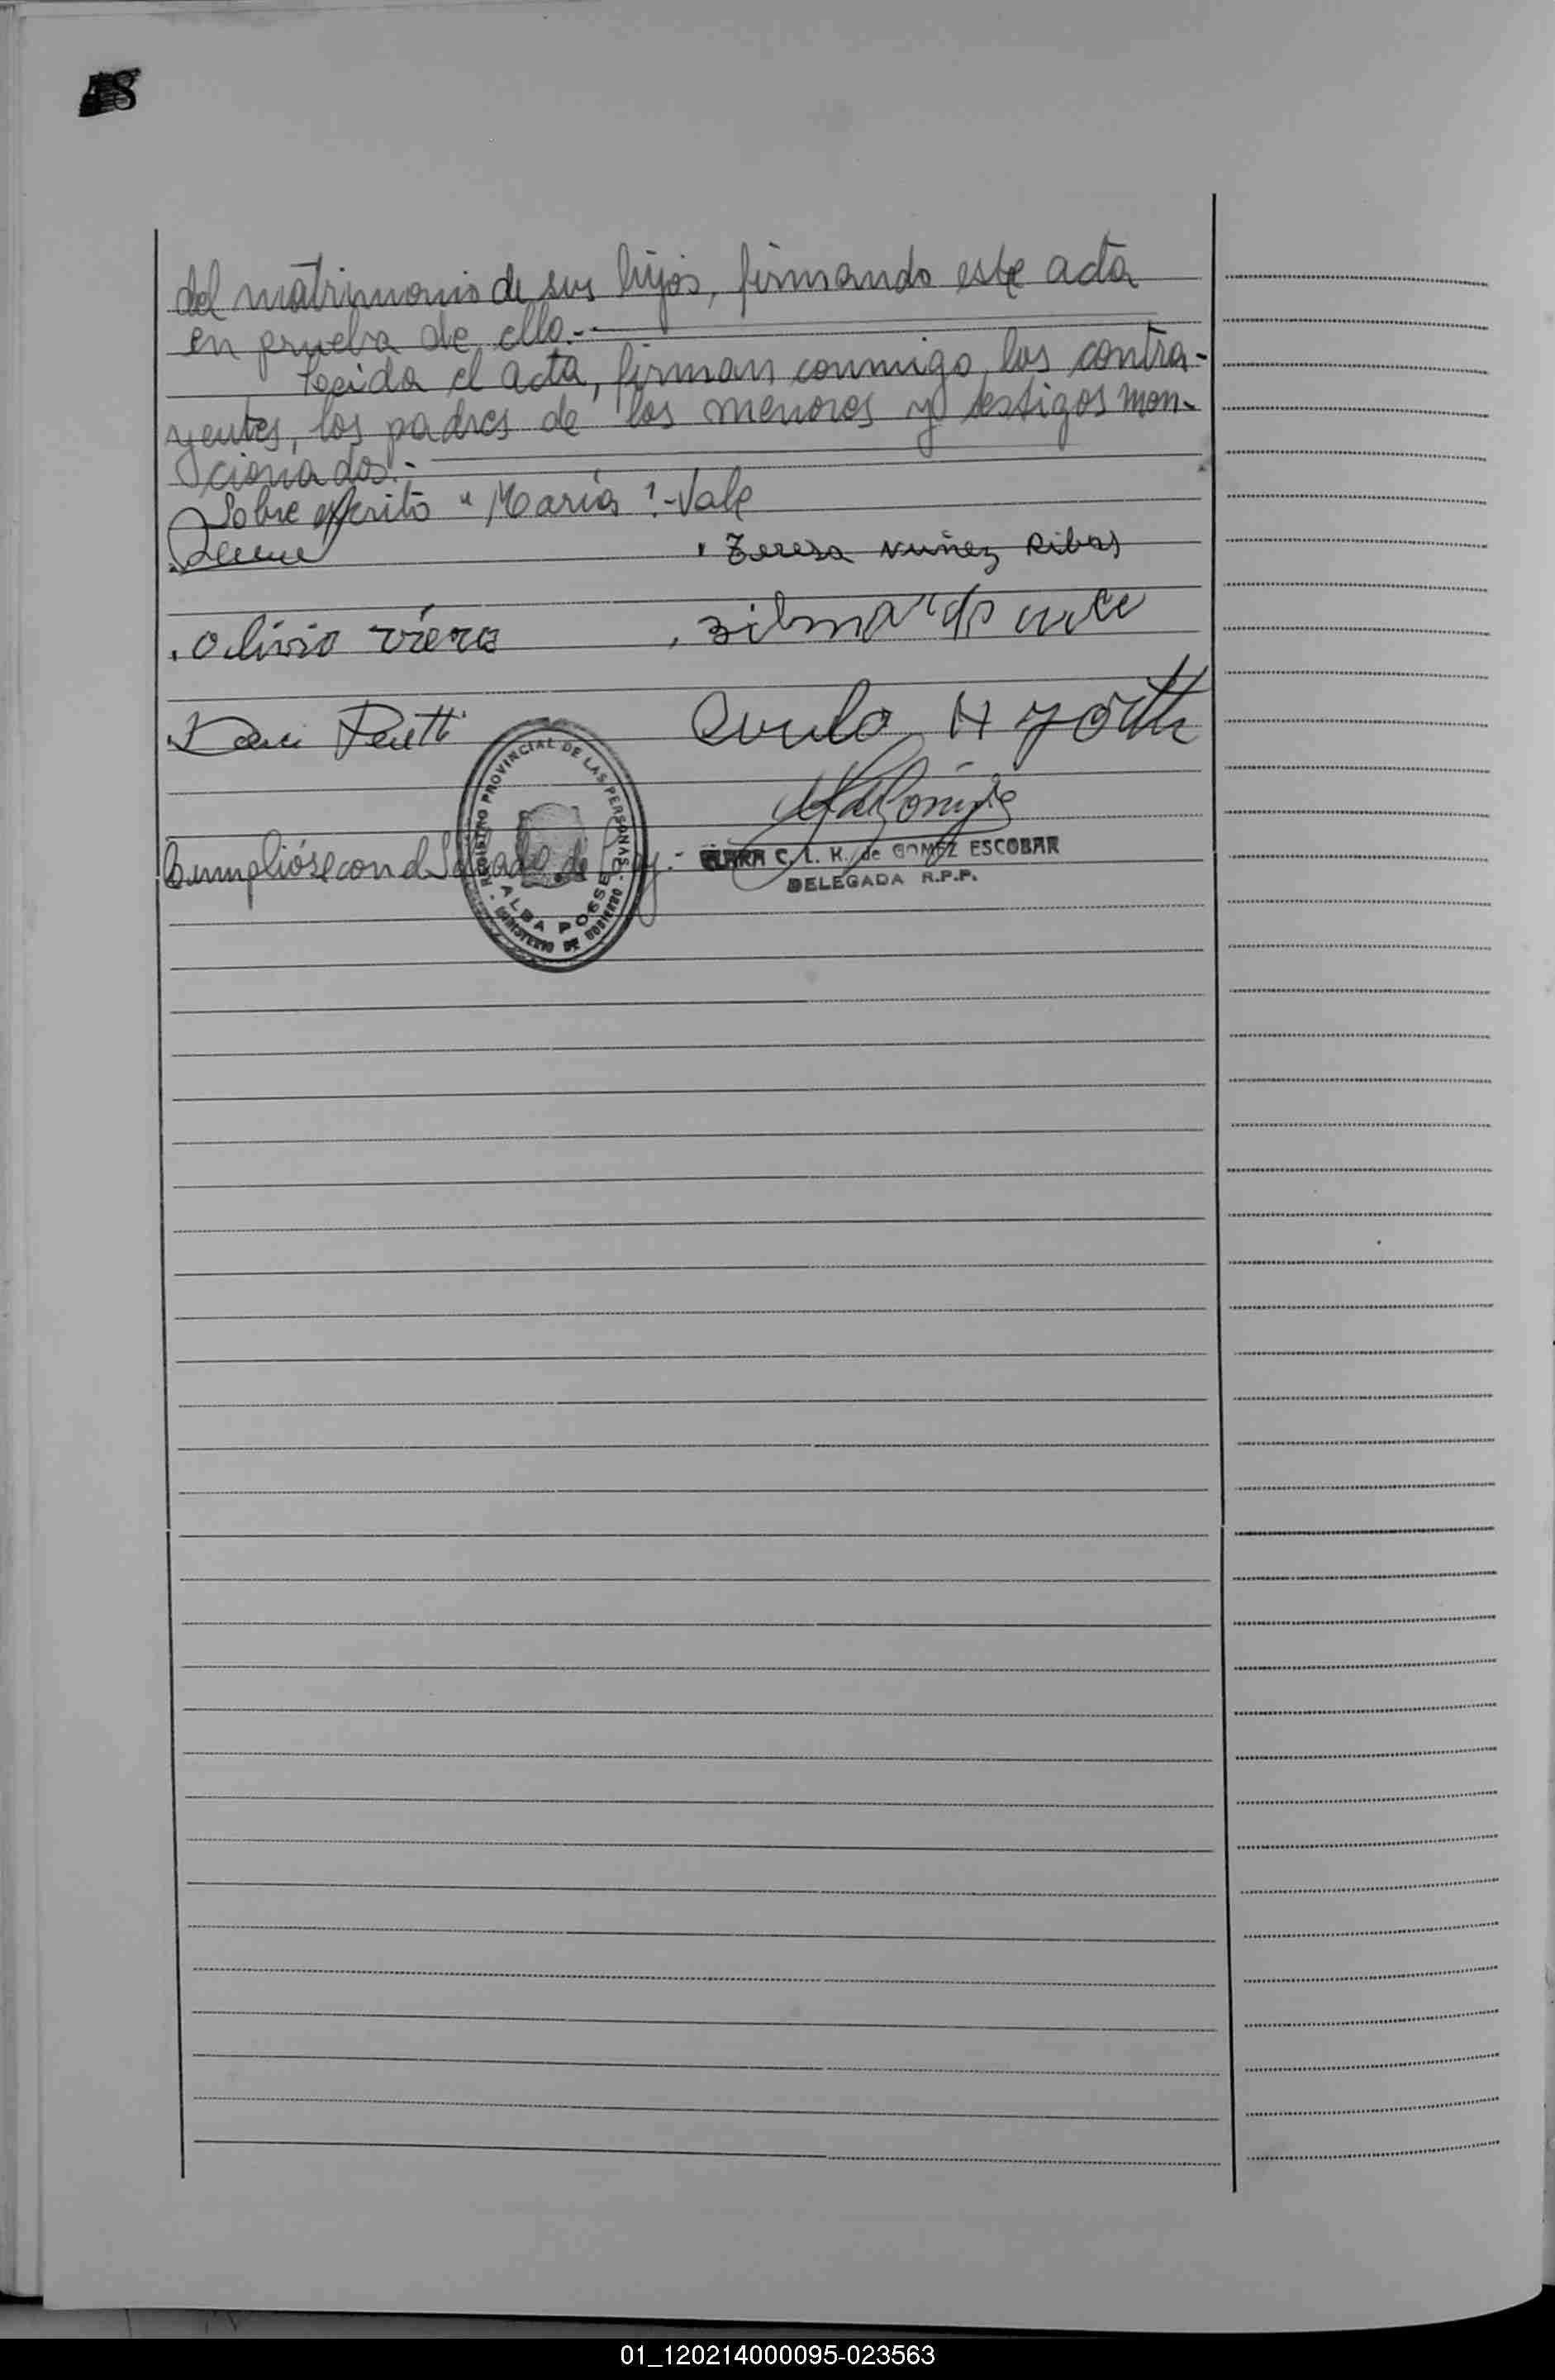 18
del matrimonio de sus hijos, firmando este acta
en prueba de ello.-
Leida el acta, firman conmigo, los contra-
yentes, los padres de los menores y testigos men-
cionados.-
Sobre escrito "María".-Vale
Teresa Nuñez Ribas
Olivio Viera
REGISTRO PROVINCIAL DE LAS PERSONAS
ALBA POSSE
MINISTERIO DE GOBIERNO
Cumplióse con el Sellado de Ley.-
CLARA C. L. K. de GOMEZ ESCOBAR
DELEGADA R.P.P.
01_120214000095-023563